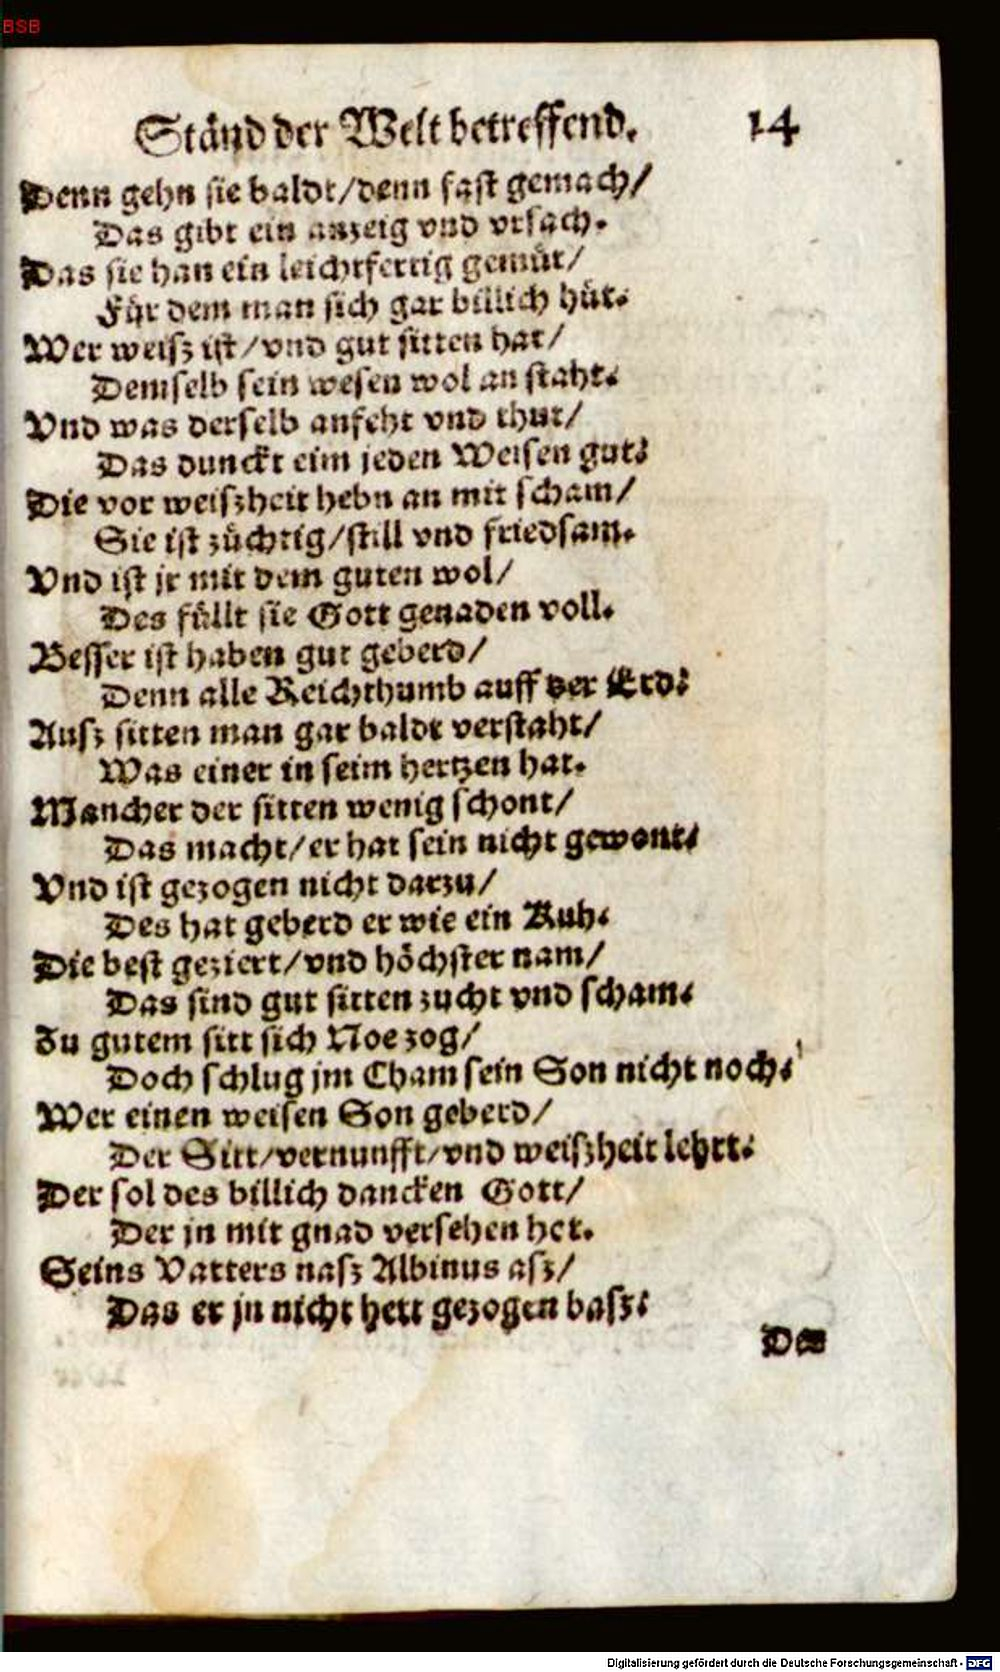 BSB
Ständ der Welt betreffend. 14
Denn gehn sie baldt/denn fast gemach/
Das gibt ein anzeig vnd vrsach.
Das sie han ein leichtfertig gemüt/
Für dem man sich gar billich hüt.
Wer weisz ist/vnd gut sitten hat/
Demselb sein wesen wol an staht.
Vnd was derselb anfeht vnd thut/
Das dunckt eim jeden Weisen gut.
Die vor weiszheit hebn an mit scham/
Sie ist züchtig/still vnd friedsam.
Vnd ist jr mit dem guten wol/
Des füllt sie Gott genaden voll.
Besser ist haben gut geberd/
Denn alle Reichthumb auff der Erd.
Ausz sitten man gar baldt verstaht/
Was einer in seim hertzen hat.
Mancher der sitten wenig schont/
Das macht/er hat sein nicht gewont.
Vnd ist gezogen nicht darzu/
Des hat geberd er wie ein Kuh.
Die best geziert/vnd höchster nam/
Das sind gut sitten zucht vnd scham.
Zu gutem sitt sich Noe zog/
Doch schlug jm Cham sein Son nicht noch.
Wer einen weisen Son geberd/
Der Sitt/vernunfft/vnd weiszheit lehrt.
Der sol des billich dancken Gott/
Der jn mit gnad versehen het.
Seins Vatters nasz Albinus asz/
Das er jn nicht hett gezogen basz.
Digitalisierung gefördert durch die Deutsche Forschungsgemeinschaft - DFG